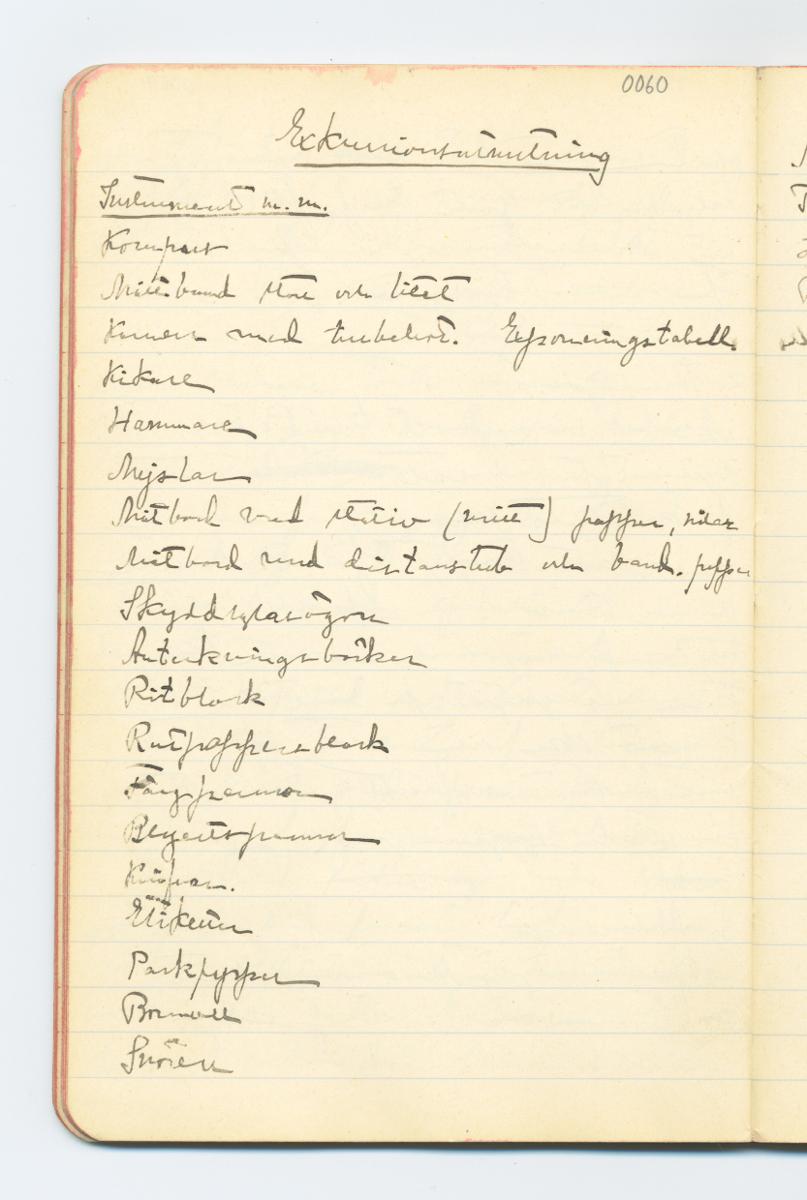 0060
Exkursionsutrustning
Instrument m.m.
Kompass
Mätband stort och litet
Kamera med tubehör. Exponeringstabell.
Kikare
Hammare
Mejslar
Mätbord med stativ papper,
Mätbord med distanstub och band. papper
Skyddsglasögon
Anteckningsböcker
Ritblock
Rutpappersblock
Färgpennor
Blyertspennor
Knifvar.
Etiketter
Packpapper
Bomull
Snören